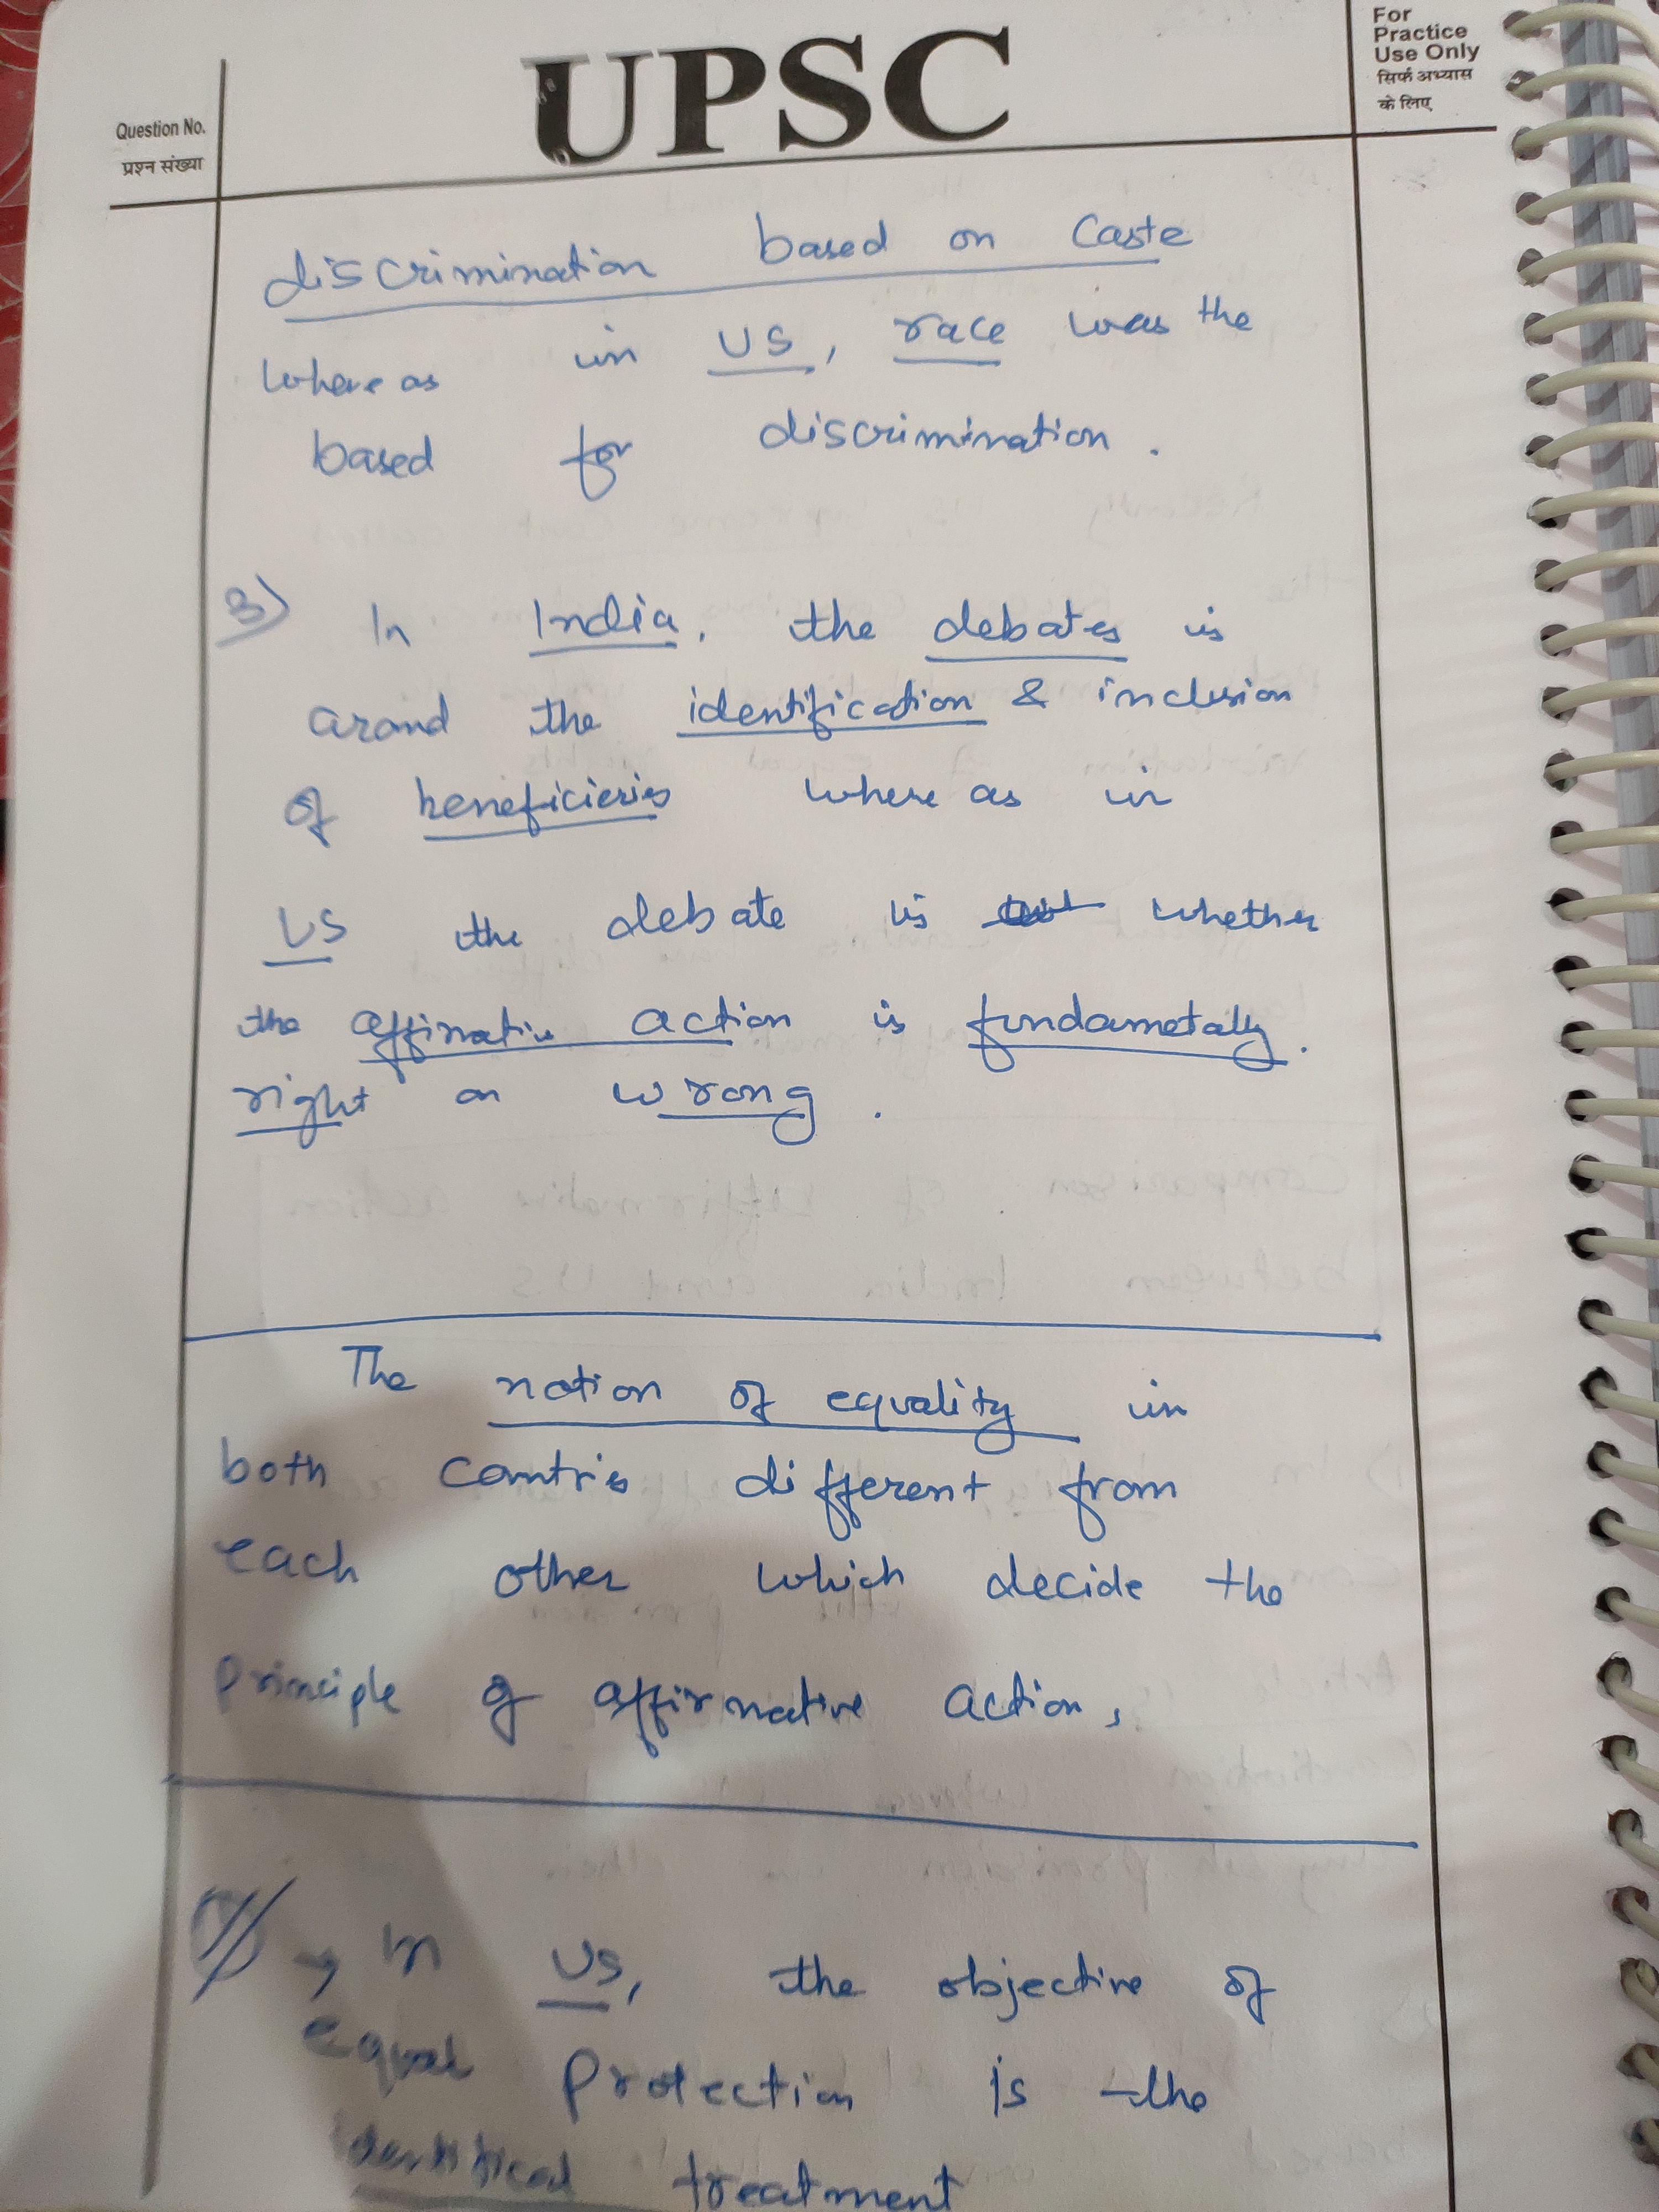 UPSC
For
Practice
Use Only
सिर्फ अभ्यास
के लिए
Question No.
प्रश्न संख्या
discrimination based on Caste
where as in US, race was the
based for discrimination.
3) In India, the debates is
arond the identification & inclusion
of beneficieries where as in
US the debate is whether
the affirmative action is fundametally.
right or wrong.
The notion of equality in
both contries different from
each other which decide the
principle of affirmative action,
→ In US, the objective of
equal protection is the
identitical treatment